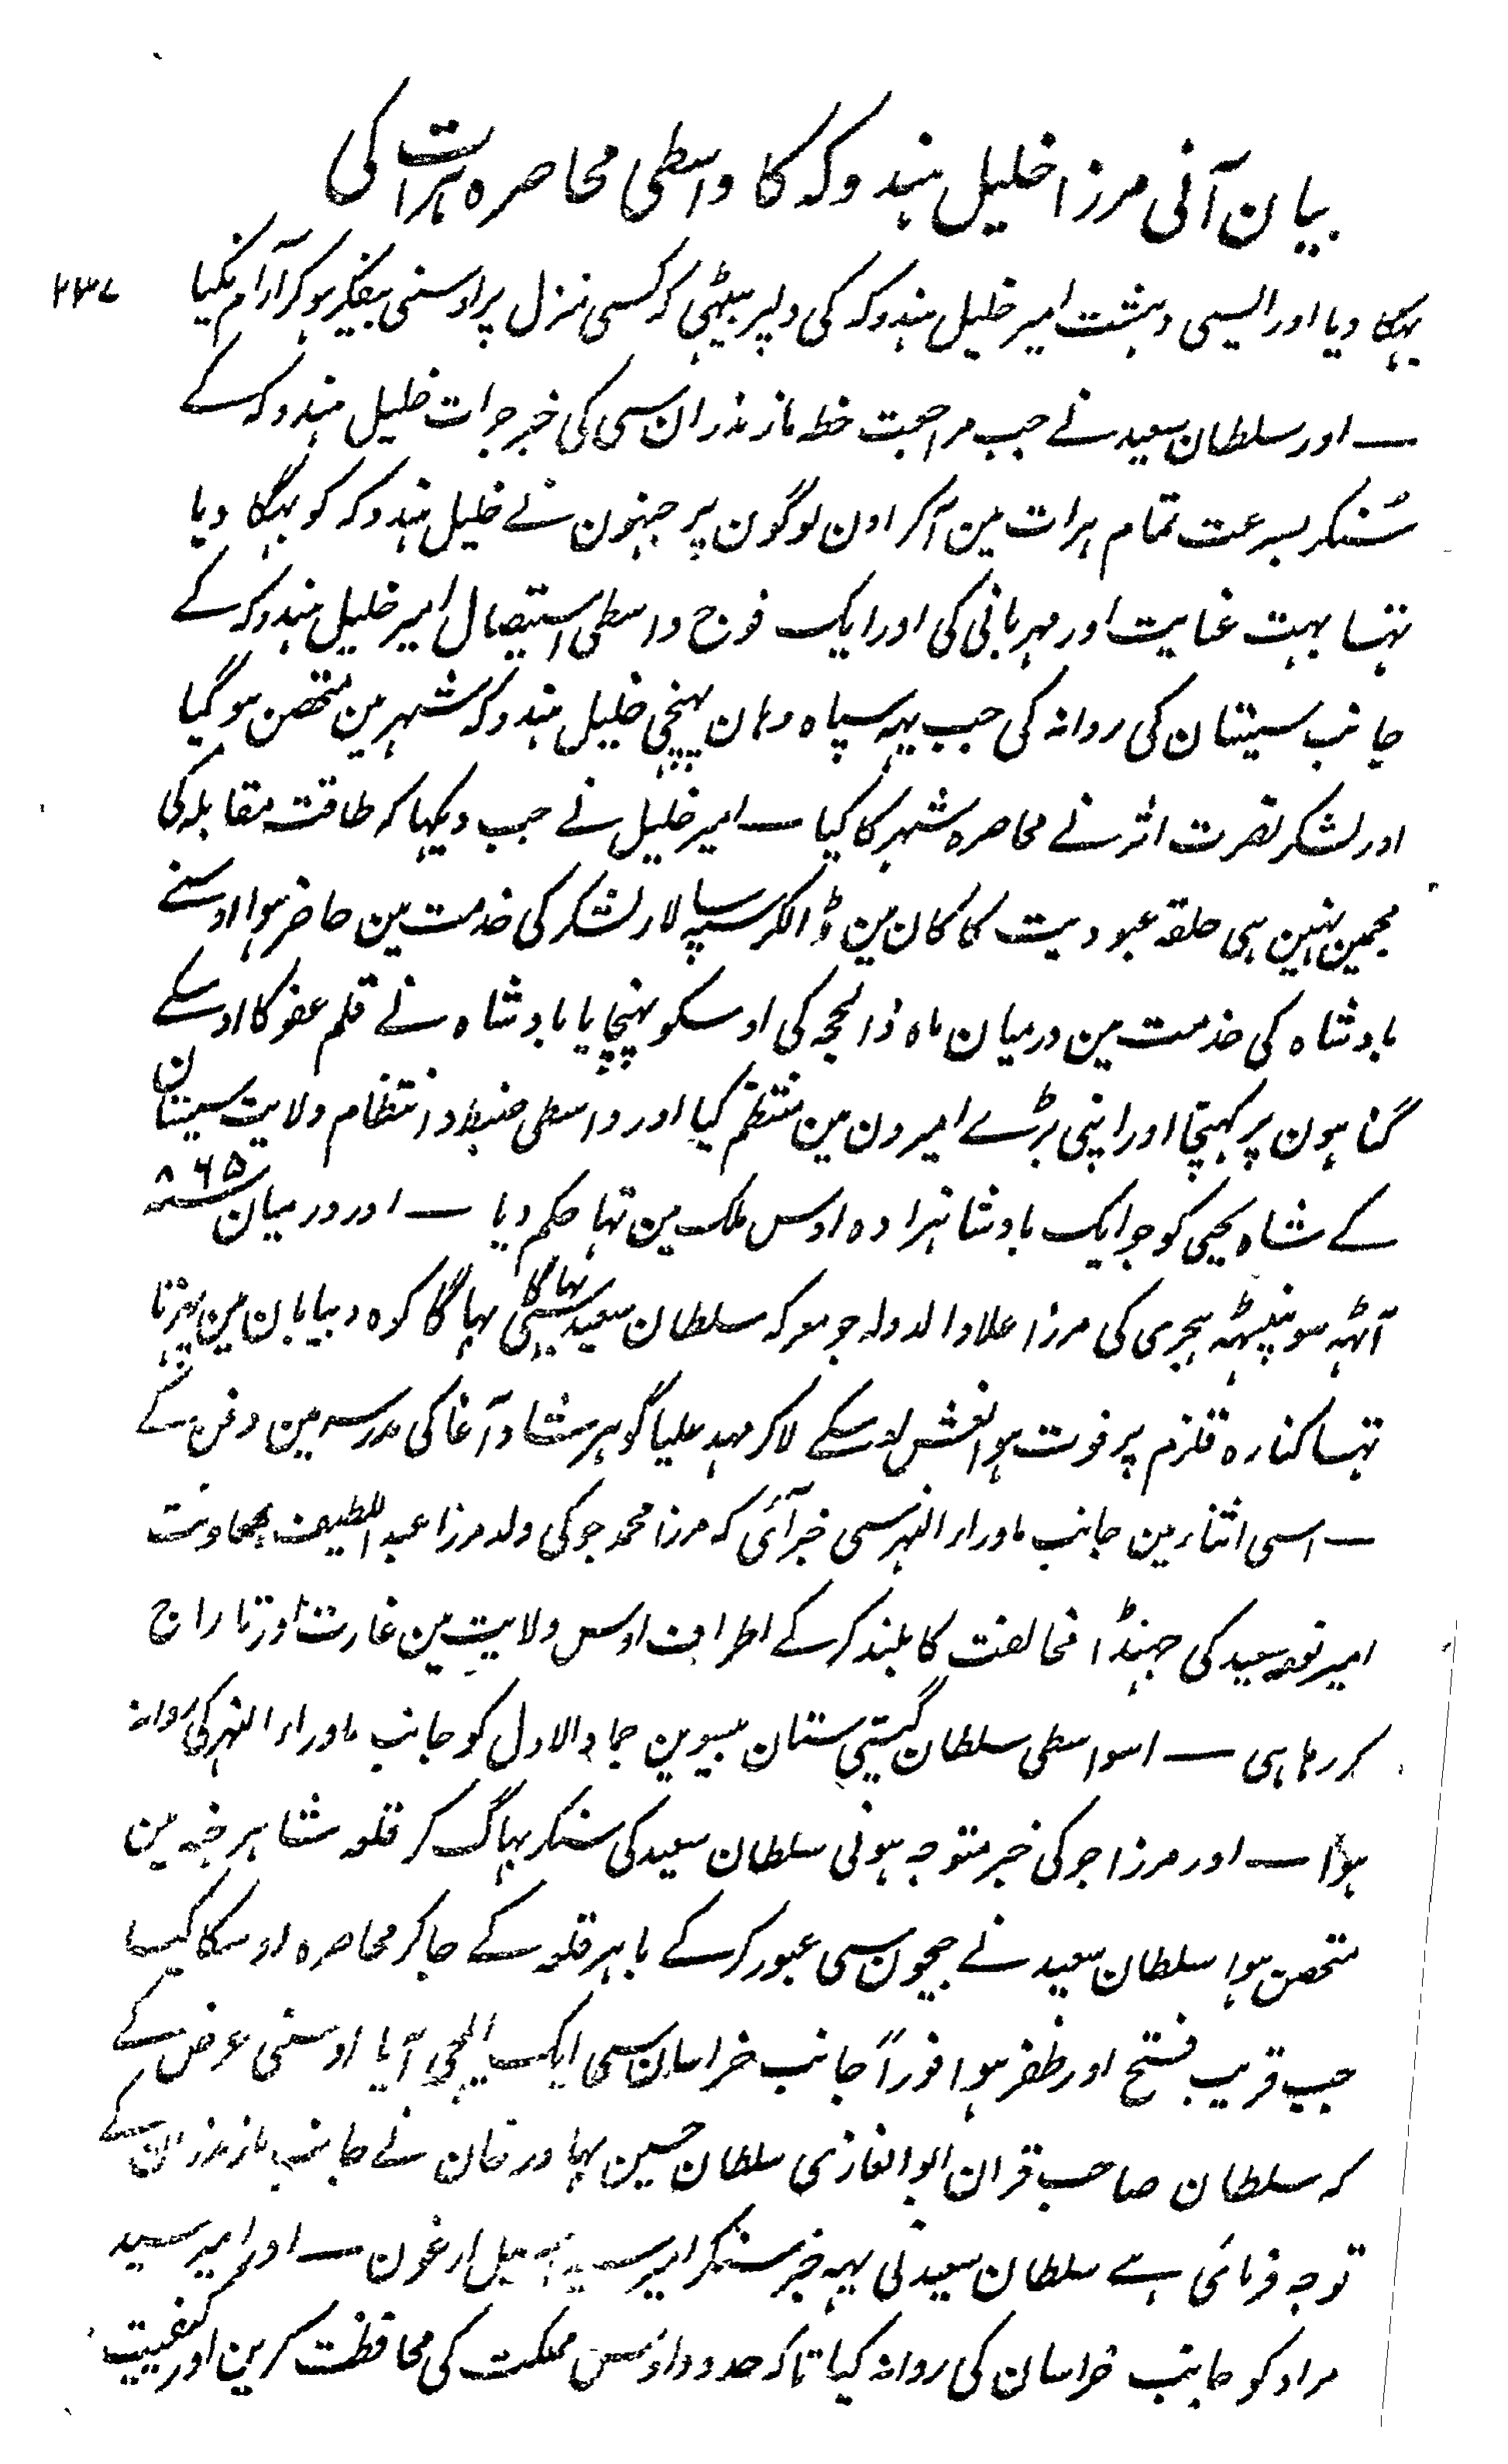 بیان آنی مرزا خلیل ہندوکہ کا واسطی محاصرہ ہرات کی
۲۳۷
بہگا دیا اور ایسی دہشت امیر خلیل ہندوکہ کی دلپر بیٹہی کہ کسی منزل پر اوسنی بیفکر ہوکر آرام نکیا
— اور سلطان سعید نے جب مراجعت خطہ مازندران سی کی خبر جرات خلیل ہندوکہ کے
سُنکر بسرعت تمام ہرات مین آکر اون لوگون پر جنہون نے خلیل ہندوکہ کو بہگا دیا
تہا بہت عنایت اور مہربانی کی اور ایک فوج واسطی استیصال امیر خلیل ہندوکہ کے
جانب سیستان کی روانہ کی جب یہہ سپاہ وہان پہنچی خلیل ہندوکہ شہر مین متحصن ہوگیا
اور لشکر نصرت اثر نے محاصرہ شہر کا کیا — امیر خلیل نے جب دیکہا کہ طاقت مقابلہ کی
مجمین نہین ہی حلقہ عبودیت کا کان مین ڈالکر سپہ سالار لشکر کی خدمت مین حاضر ہوا اوسنے
بادشاہ کی خدمت مین درمیان ماہ ذالحجہ کی اوسکو پہنچایا بادشاہ نے قلم عفو کا اوسکے
گناہون پر کہینچا اور اپنی بڑے امیرون مین منتظم کیا اور واسطی ضبط و انتظام ولایت سیستان
کے شاہ یحیی کو جو ایک بادشاہزادہ اوس ملک مین تہا حکم دیا — اور درمیان سنہ ۸۶۵
آٹہہ سو پینسٹہہ ہجری کی مرزا علاوالدولہ جو معرکہ سلطان سعید سی بہاگا تہا بہاگا کوہ و بیابان مین پہرتا
تہا کنارہ قلزم پر فوت ہوا نعش اوسکے لاکر مہد علیا گوہر شاد آغا کی مدرسہ مین دفن کے
— اسی اثناء مین جانب ماوراء النہر سی خبر آئی کہ مرزا محمد جوکی ولد مرزا عبداللطیف بمعاونت
امیر نور سعید کی جہنڈا مخالفت کا بلند کرکے اطراف اوس ولایت مین غارت اور تاراج
کر رہا ہی — اسواسطی سلطان گیتی ستان بیسوین جمادالاول کو جانب ماوراء النہر کی روانہ
ہوا — اور مرزا جوکی خبر متوجہ ہونی سلطان سعید کی سنکر بہاگ کر قلعہ شاہرخیہ مین
متحصن ہوا سلطان سعید نے جیحون سی عبور کرکے باہر قلعہ کے جاکر محاصرہ اوسکا کیا
جب قریب فتح اور ظفر ہوا فوراً جانب خراسان سی ایک ایلچی آیا اوسنی عرض کے
کہ سلطان صاحب قران ابوالغازی سلطان حسین بہادر خان نے جانب مازندران کے
توجہ فرمائی ہے سلطان سعید نی یہہ خبر سنکر امیر سید اصیل ارغون — اور امیر سید
مراد کو جانب خراسان کی روانہ کیا تاکہ حدود اوس مملکت کی محافظت کرین اور کیفیت